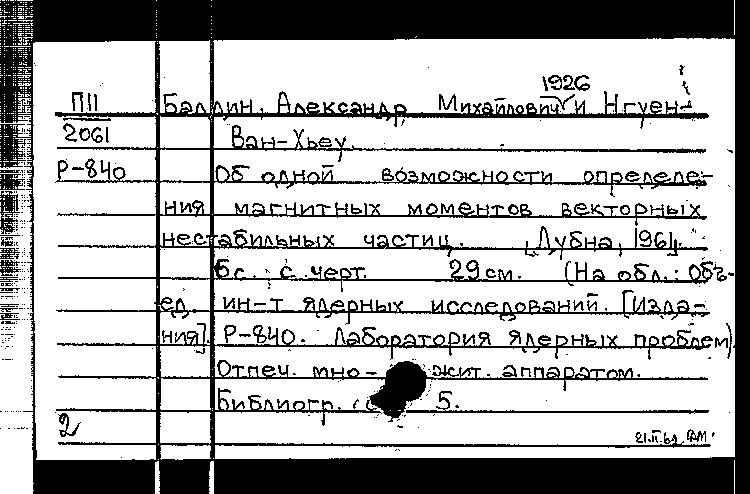 1926
П11 Балдин, Александр Михайлович и Нгуен-
2061 Ван-Хьеу.
Р-840 Об одной возможности определе-
ния магнитных моментов векторных
нестабильных частиц. [Дубна, 1961].
6 с. ; с черт. 29 см. (На обл.: Объ-
ед. ин-т ядерных исследований. [Изда-
ния]. Р-840. Лаборатория ядерных проблем)
Отпеч. мно- жит. аппаратом.
Библиогр. с 5.
2